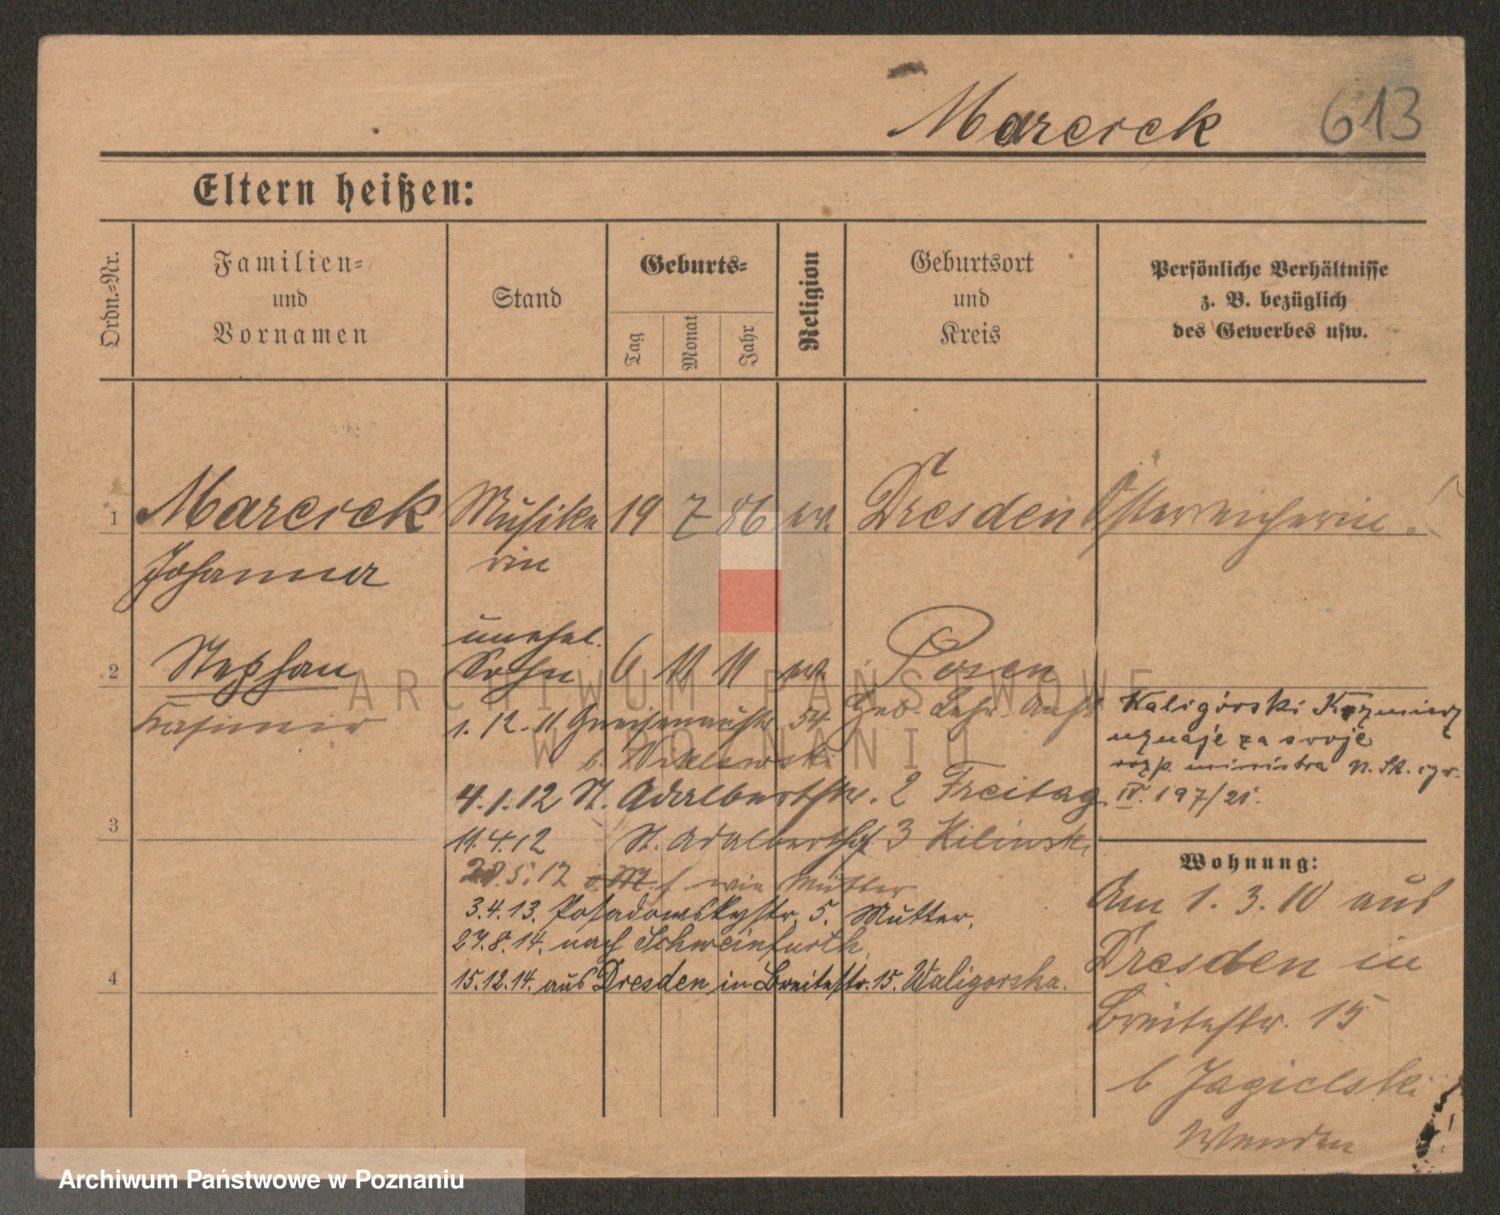 Marcick 613
Eltern heißen:
Ordn.-Nr.
Familien-
und
Vornamen
Stand
Geburts-
Tag
Monat
Jahr
Religion
Geburtsort
und
Kreis
Persönliche Verhältnisse
z. B. bezüglich
des Gewerbes usw.
1 Marcick Musike 19 7 86 Dresden Österreicherin
Johanna rin
unehel.
2 Stephan Sohn 6 11 11 Posen
Kasimir
1. 12. 11 Gneisenaustr. 54 Geb. Lehr. Anst
Kaligórski Kazmierz
uznaje za swoje
rozp. ministra
IV. 197/21.
4.1.12 St. Adalbertstr. 2 Freitag
3
11.4.12 St. Adalbertstr 3 Kilinski
5.12 wie Mutter
3.4.13. Posadowskystr. 5. Mutter.
27.8.14. nach Schweinfurth.
4
15.12.14. aus Dresden in Breitestr. 15. Waligorska.
Wohnung:
Am 1. 3. 10 aus
Dresden in
Breitestr. 15
b Jagielski
ARCHIWUM PAŃSTWOWE
W POZNANIU
Archiwum Państwowe w Poznaniu